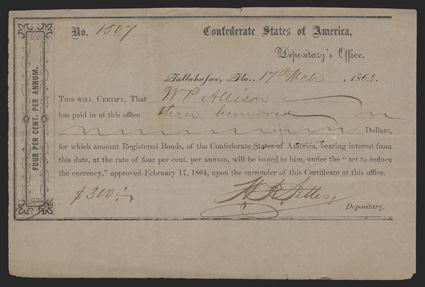 FOUR PER CENT. PER ANNUM.
No. 1807 Confederate States of America,
Depositary's Office,
Tallahassee, Fla., 17th Mch 1864.
THIS WILL CERTIFY, That W P Allison
has paid in at this office three hundred
Dollars,
for which amount Registered Bonds, of the Confederate States of America, bearing interest from
this date, at the rate of four per cent. per annum, will be issued to him, under the "act to reduce
the currency," approved February 17, 1864, upon the surrender of this Certificate at this office.
$300
Depositary.